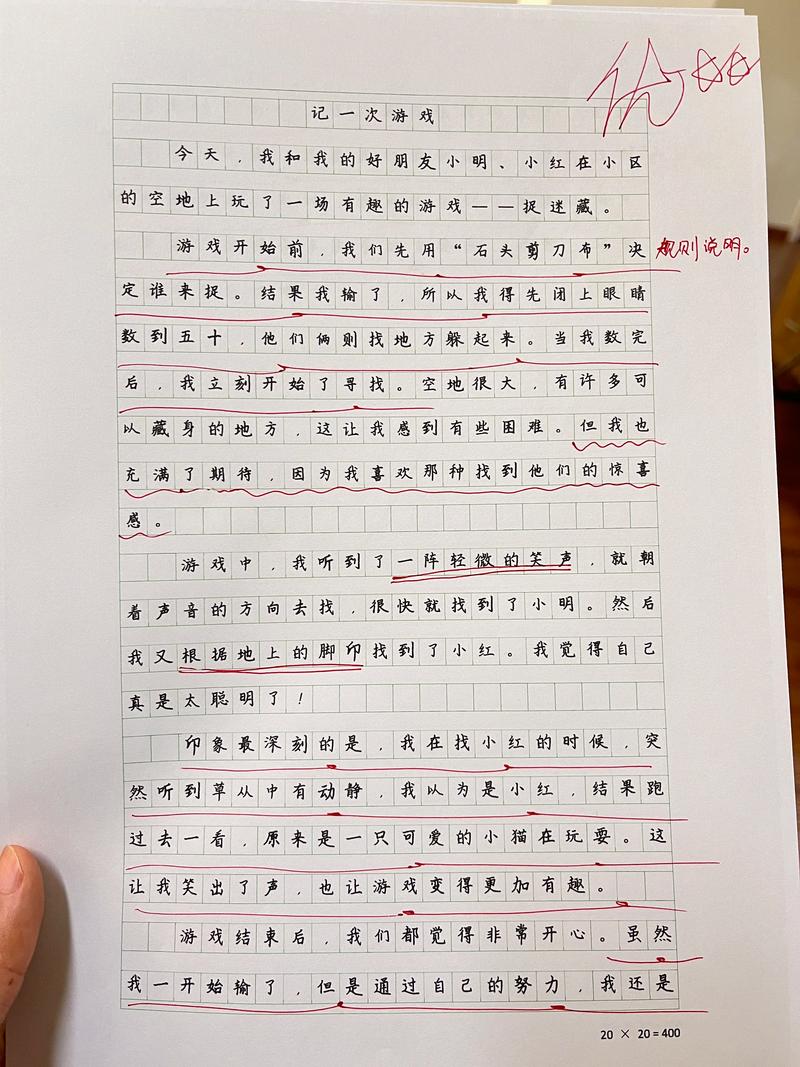 优☆☆
记一次游戏
今天，我和我的好朋友小明、小红在小区
的空地上玩了一场有趣的游戏——捉迷藏。
游戏开始前，我们先用“石头剪刀布”决
规则说明。
定谁来捉。结果我输了，所以我得先闭上眼睛
数到五十，他们俩则找地方躲起来。当我数完
后，我立刻开始了寻找。空地很大，有许多可
以藏身的地方，这让我感到有些困难。但我也
充满了期待，因为我喜欢那种找到他们的惊喜
感。
游戏中，我听到了一阵轻微的笑声，就朝
着声音的方向去找，很快就找到了小明。然后
我又根据地上的脚印找到了小红。我觉得自己
真是太聪明了！
印象最深刻的是，我在找小红的时候，突
然听到草从中有动静，我以为是小红，结果跑
过去一看，原来是一只可爱的小猫在玩耍。这
让我笑出了声，也让游戏变得更加有趣。
游戏结束后，我们都觉得非常开心。虽然
我一开始输了，但是通过自己的努力，我还是
20 × 20 = 400